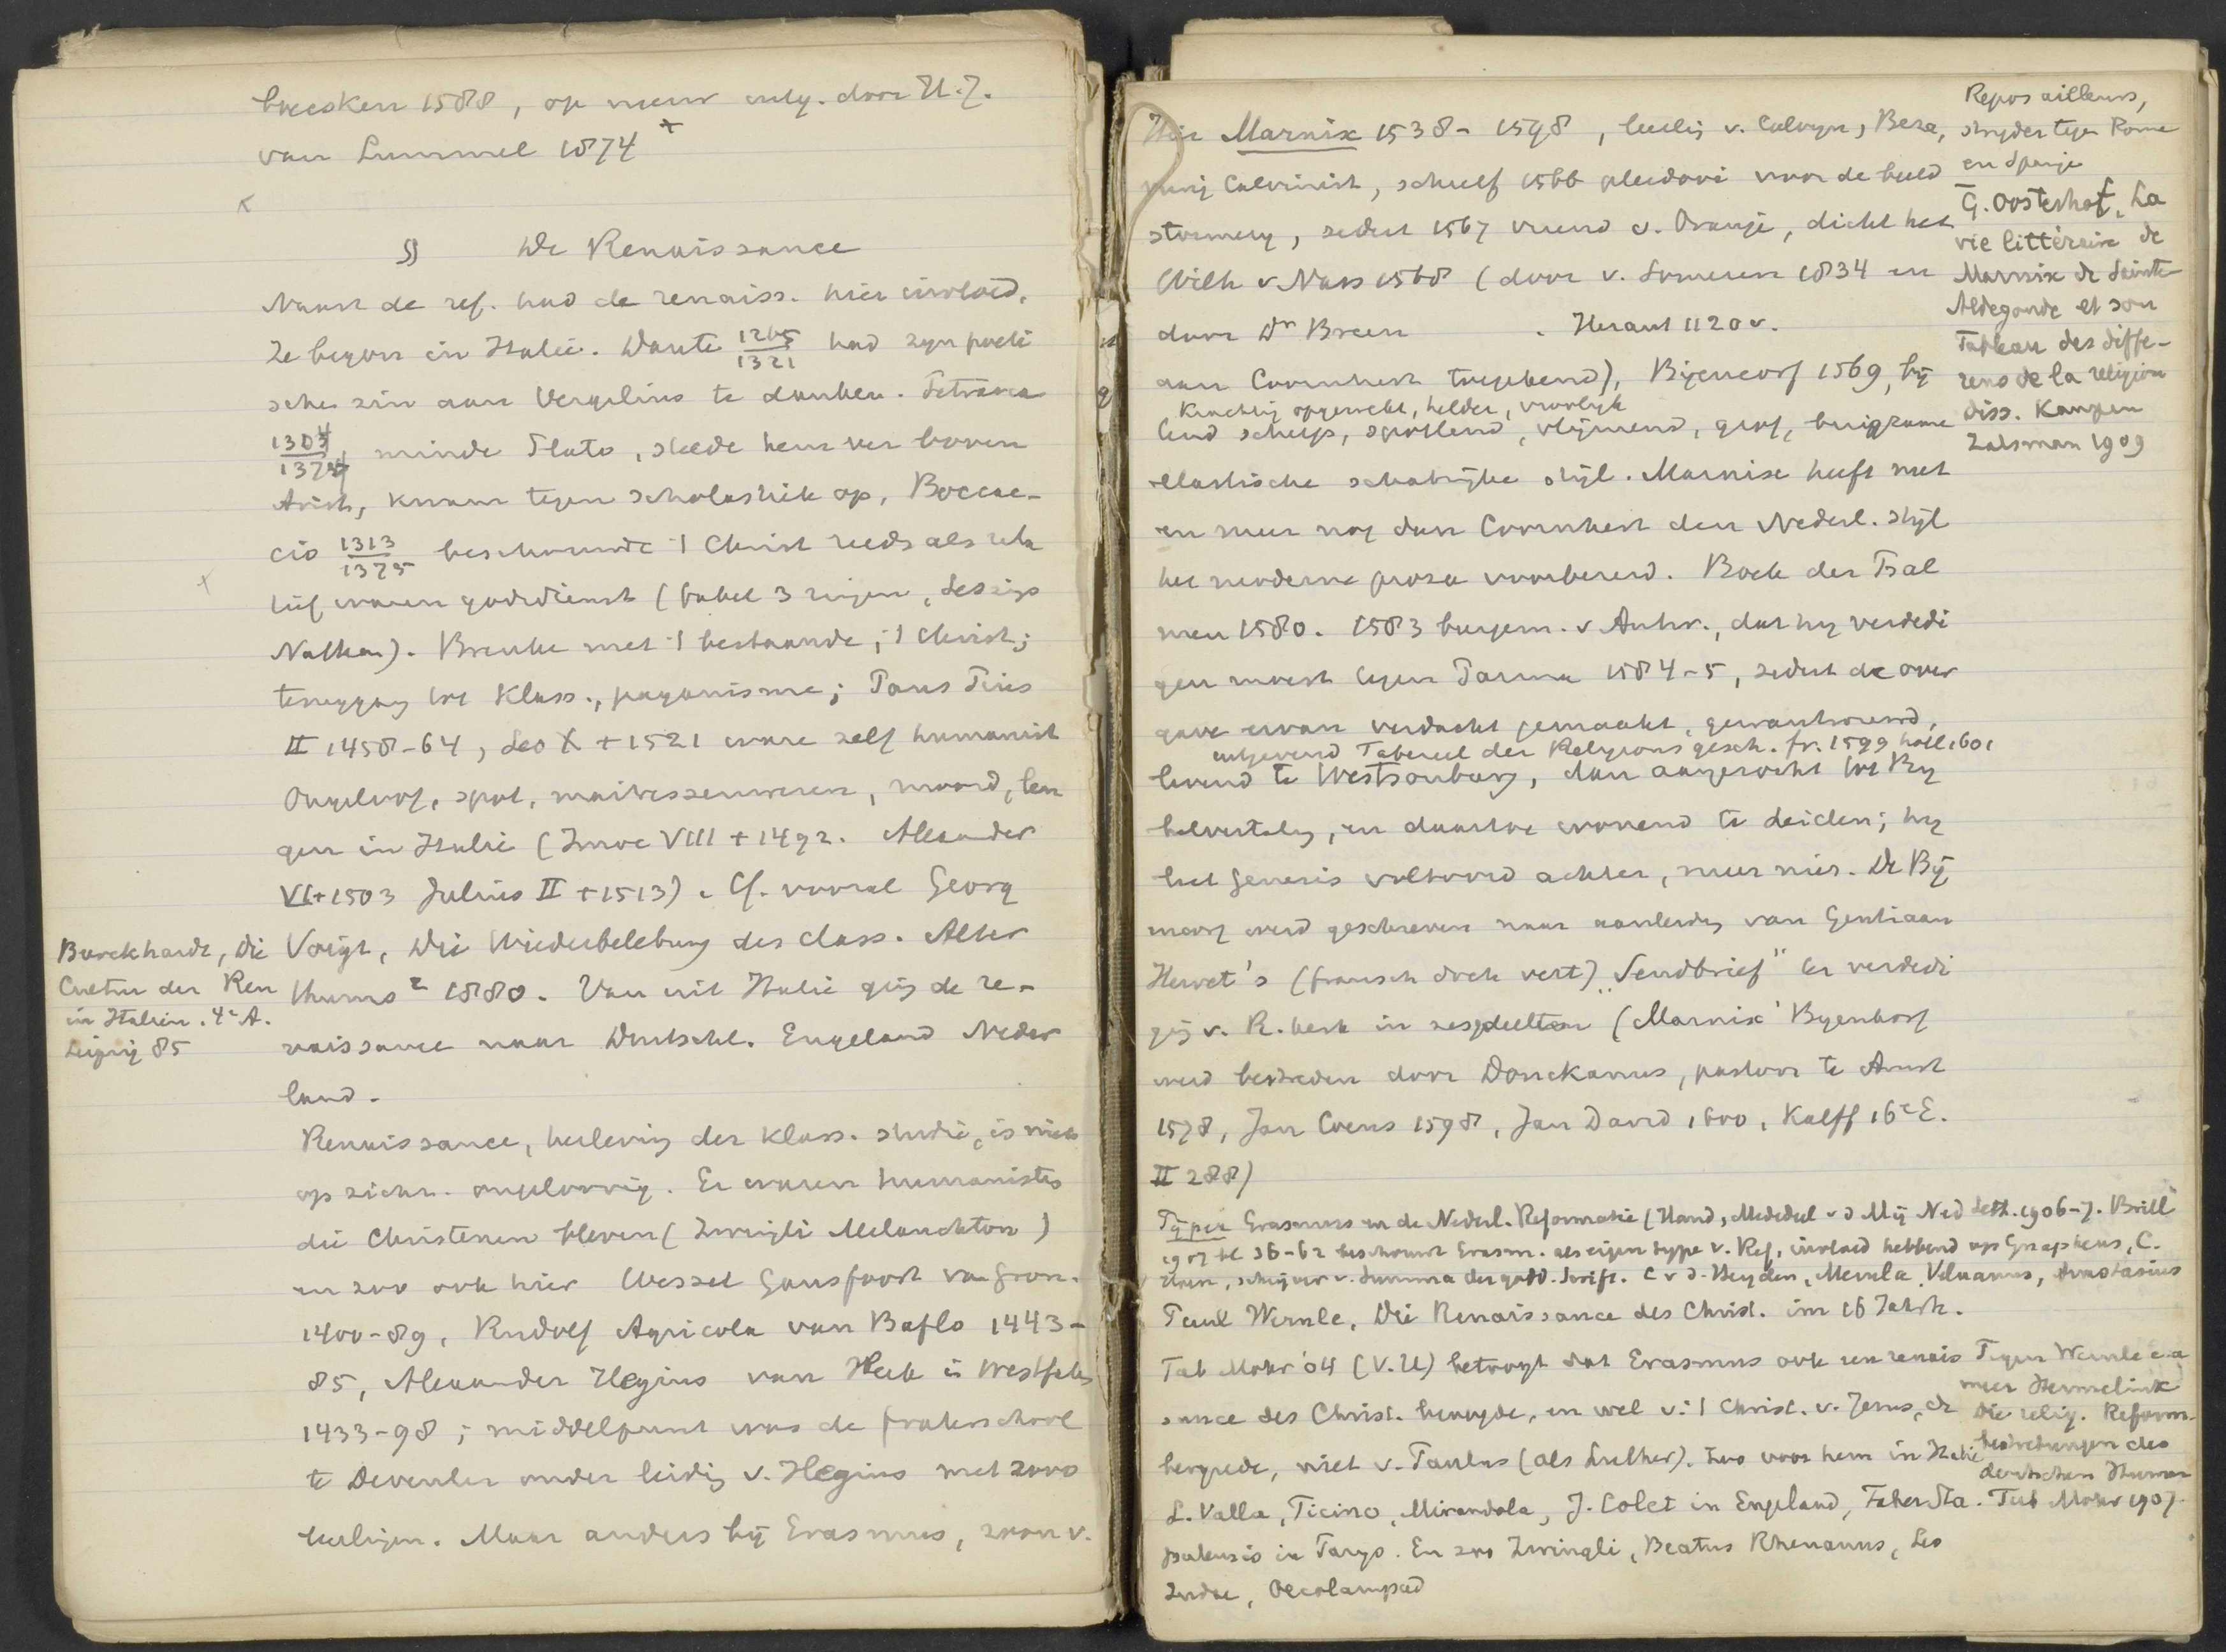 breeken 1588, op nieuw uitg. door H.J.
van Lummel 1874 +
§ De Renaissance
Naast de ref. had de renaiss. hier invloed.
Ze begon in Italië. Dante 1265 1321 had zijn poëti
sche zin aan Vergilius te danken. Petrarca
1304 1374 minde Plato, stelde hem ver boven
Arist, kwam tegen scholastiek op, Boccac-
cio 1313 1375 beschouwde 't Christ reeds als rela
tief ware godsdienst (fabel 3 ringen, Lessings
Nathan). Breuke met 't bestaande, 't Christ;
teruggang tot klass., paganisme; Paus Pius
II 1458-64, Leo X + 1521 ware zelf humanist
Ongeloof, spot, maitressenwezen, moord, ten
gen in Italië (Innoc VIII + 1492. Alexander
VI + 1503 Julius II + 1513). Cf. vooral Georg
Voigt, Die Wiederbelebung des class. Alter
thums 2 1880. Van uit Italië ging de re-
naissance naar Duitschl. Engeland Neder
land.
Burckhardt, Die
Cultur der Ren
in Italien. 4e A.
Leipzig 85
Renaissance, herleving der klass. studie, is niet
op zichz. ongeloovig. Er waren humanisten
die Christenen bleven (Zwingli Melanchton)
en zoo ook hier Wessel Gansfoort van Gron.
1400-89, Rudolf Agricola van Baflo 1443-
85, Alexander Hegius van Heek in Westfalen
1433-98; middelpunt was de fraterschool
te Deventer onder leiding v. Hegius met 2000
leerlingen. Maar anders bij Erasmus, zoon v.
Marnix 1538-1598, leerling v. Calvijn, Beza,
Calvinist, schreef 1566 pleidooi voor de beeld
stormerij, sedert 1567 vriend v. Oranje, dicht het
Wilh v Nass 1568 (door v. Someren 1834 en
door Dr Breen . Heraut 1120 v.
aan Coornhert toegekend), Bijencorf 1569, bij
krachtig opgewekt, helder, vroolijk
tend scherp, spottend, vlijmend, grof, buigzame
elastische schatrijke stijl. Marnix heeft met
en meer nog dan Coornhert den Nederl. stijl
het moderne proza voorbereid. Boek der Psal
men 1580. 1583 burgem. v Antw., dat hij verdedi
gen moest tegen Parma 1584-5, sedert de over
gave ervan verdacht gemaakt, gewantrouwd,
uitgevend Tabereel der Religions gesch. fr. 1599 holl. 1601
levend te Westsouburg, dan aangezocht tot Bij
belvertaling, en daartoe wonend te Leiden; hij
liet Genesis voltooid achter, meer niet. De Bij
encorf werd geschreven naar aanleiding van Gentiaan
Hervet's (fransch doch vert) "Sendbrief" ter verdedi
ging v. R. kerk in zes deelten (Marnix' Byenkorf
werd bestreden door Donckanus, pastoor te Amst
1578, Jan Coens 1598, Jan David 1600, Kalff 16e E.
II 288)
Repos ailleurs,
strijder tegen Rome
en Spanje
G. Oosterhof, La
vie littéraire de
Marnix de Sainte
Aldegonde et son
Tableau des diffe-
rens de la religion
diss. Kampen
Zalsman 1909
Pijper Erasmus en de Nederl. Reformatie (Hand, Mededeel v d Mij Ned Lett. 1906-7. Brill
1907 bl 36-62 beschouwt Erasm. als eigen type v. Ref, invloed hebbend op Gnapheus, C.
Hoen, schrijver v. Summa der godd. Scrift. C v d. Heyden, Merula Veluanus, Anastasius
Paul Wernle, Die Renaissance des Christ. im 16 Jahrh.
Tub Mohr '04 (V.U) betoogt dat Erasmus ook een renais
sance des Christ. beoogde, en wel v. 't Christ. v. Jezus, de
bergrede, niet v. Paulus (als Luther). Zoo voor hem in Italië
L. Valla, Ficino, Mirandola, J. Colet in Engeland, Faber Sta.
pulensis in Parijs. En zoo Zwingli, Beatus Rhenanus, Leo
Judae, Oecolampad
Tegen Wernle e.a
meer Hermelink
Die relig. Reform-
bestrebungen des
deutschen Human
Tub Mohr 1907.